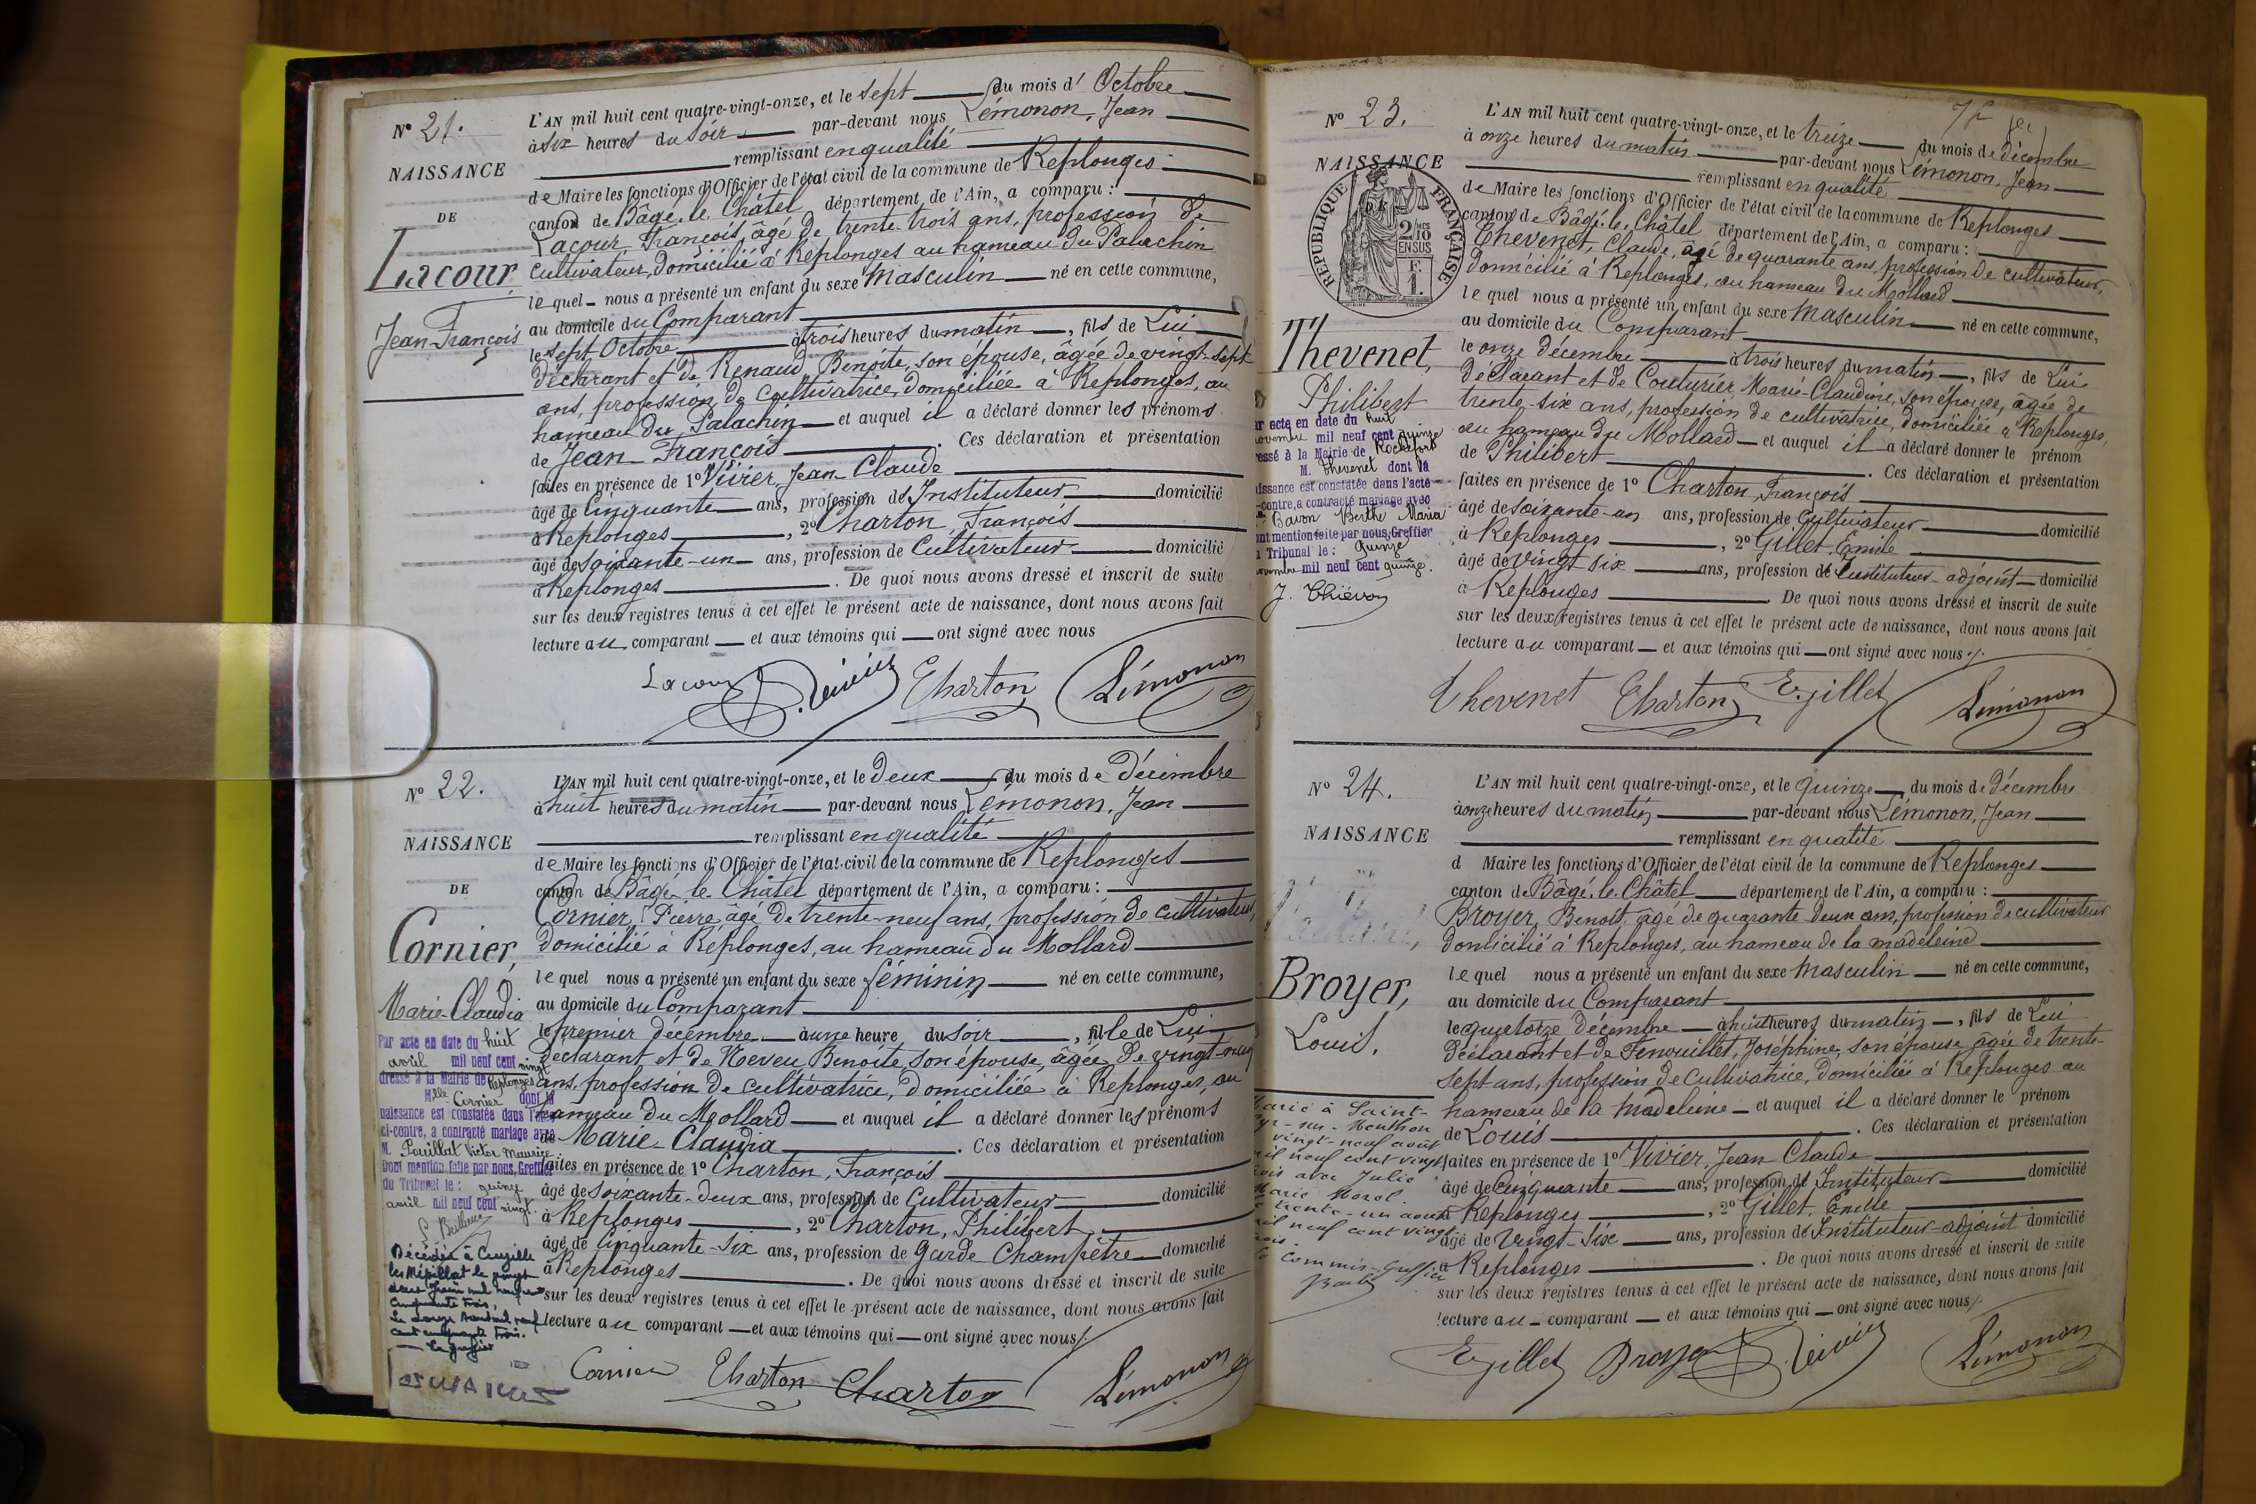 N° 21.
NAISSANCE
DE
Lacour
Jean-François
L'AN mil huit cent quatre-vingt-onze, et le sept du mois d'Octobre
à six heures du soir par-devant nous Lémonon, Jean
remplissant en qualité
de Maire les fonctions d'Officier de l'état civil de la commune de Replonges
canton de Bâgé-le-Châtel département de l'Ain, a comparu :
Lacour François, âgé de trente-trois ans, profession de
cultivateur, domicilié à Replonges au hameau du Palachin
lequel nous a présenté un enfant du sexe Masculin né en cette commune,
au domicile du Comparant
le sept Octobre à trois heures du matin, fils de Lui
déclarant et de Renaud, Benoite, son épouse, âgée de vingt-sept
ans, profession de cultivatrice, domiciliée à Replonges, au
hameau du Palachin et auquel il a déclaré donner les prénoms
de Jean François. Ces déclaration et présentation
faites en présence de 1° Vivier, Jean Claude
âgé de Cinquante ans, profession de Instituteur domicilié
à Replonges, 2° Charton, François
âgé de soixante-un ans, profession de Cultivateur domicilié
à Replonges. De quoi nous avons dressé et inscrit de suite
sur les deux registres tenus à cet effet le présent acte de naissance, dont nous avons fait
lecture au comparant et aux témoins qui ont signé avec nous
Lacour Vivier Charton Lémonon
N° 22.
NAISSANCE
DE
Cornier,
Marie-Claudia
Par acte en date du huit
avril mil neuf cent vingt
dressé à la Mairie de Replonges
Mlle Cornier dont la
naissance est constatée dans l'acte
ci-contre, a contracté mariage avec
M. Pouillat Victor Maurice
Dont mention faite par nous, Greffier
du Tribunal le : quinze
avril mil neuf cent vingt.
Décédée à Cruzille
les Mépillat le vingt
mil neuf cent
cinquante trois,
Le douze
cent cinquante trois.
Le greffier
L'AN mil huit cent quatre-vingt-onze, et le Deux du mois de Décembre
à huit heures du matin par-devant nous Lémonon, Jean
remplissant en qualité
de Maire les fonctions d'Officier de l'état civil de la commune de Replonges
canton de Bâgé-le-Châtel département de l'Ain, a comparu :
Cornier, Pierre âgé de trente-neuf ans, profession de cultivateur,
domicilié à Replonges, au hameau du Mollard
lequel nous a présenté un enfant du sexe féminin né en cette commune,
au domicile du Comparant
le premier décembre à une heure du soir, fille de Lui
déclarant et de Neveu Benoite, son épouse, âgée de vingt-neuf
ans, profession de cultivatrice, domiciliée à Replonges, au
hameau du Mollard et auquel il a déclaré donner les prénoms
de Marie-Claudia. Ces déclaration et présentation
faites en présence de 1° Charton, François
âgé de soixante-deux ans, profession de Cultivateur domicilié
à Replonges, 2° Charton, Philibert
âgé de Cinquante-six ans, profession de Garde Champêtre domicilié
à Replonges. De quoi nous avons dressé et inscrit de suite
sur les deux registres tenus à cet effet le présent acte de naissance, dont nous avons fait
lecture au comparant et aux témoins qui ont signé avec nous
Cornier Charton Charton Lémonon
N° 23.
NAISSANCE
RÉPUBLIQUE FRANÇAISE
2/10 EN SUS
Thevenet,
Philibert
acte en date du huit
novembre mil neuf cent quinze
dressé à la Mairie de Rochefort
M. Thevenet dont la
naissance est constatée dans l'acte
contre, a contracté mariage avec
Bavon Berthe Maria
mention faite par nous, Greffier
Tribunal le : quinze
novembre mil neuf cent quinze.
J. Thiévon
L'AN mil huit cent quatre-vingt-onze, et le treize du mois de décembre
à onze heures du matin par-devant nous Lémonon, Jean
remplissant en qualité
de Maire les fonctions d'Officier de l'état civil de la commune de Replonges
canton de Bâgé-le-Châtel département de l'Ain, a comparu :
Thevenet, Claude, âgé de quarante ans, profession de cultivateur,
domicilié à Replonges, au hameau du Mollard
lequel nous a présenté un enfant du sexe Masculin né en cette commune,
au domicile du Comparant
le onze décembre à trois heures du matin, fils de Lui
déclarant et de Couturier, Marie-Claudine, son épouse, âgée de
trente-six ans, profession de cultivatrice, domiciliée à Replonges,
au hameau du Mollard et auquel il a déclaré donner le prénom
de Philibert. Ces déclaration et présentation
faites en présence de 1° Charton, François
âgé de soixante-un ans, profession de Cultivateur domicilié
à Replonges, 2° Gillet, Emile
âgé de vingt six ans, profession de Instituteur-adjoint domicilié
à Replonges. De quoi nous avons dressé et inscrit de suite
sur les deux registres tenus à cet effet le présent acte de naissance, dont nous avons fait
lecture au comparant et aux témoins qui ont signé avec nous
Thevenet Charton E. Gillet Lémonon
N° 24.
NAISSANCE
Broyer,
Louis.
Marié à Saint-
Cyr-sur-Menthon
vingt-neuf août
mil neuf cent vingt
trois avec Julie
Marie Morel.
trente-un août
mil neuf cent vingt
trois.
Le Commis-Greffier
L'AN mil huit cent quatre-vingt-onze, et le quinze du mois de Décembre
à onze heures du matin par-devant nous Lémonon, Jean
remplissant en qualité
d Maire les fonctions d'Officier de l'état civil de la commune de Replonges
canton de Bâgé-le-Châtel département de l'Ain, a comparu :
Broyer, Benoît, âgé de quarante-deux ans, profession de cultivateur
domicilié à Replonges, au hameau de la madeleine
lequel nous a présenté un enfant du sexe Masculin né en cette commune,
au domicile du Comparant
le quatorze décembre à huit heures du matin, fils de Lui
déclarant et de Fenouillet, Joséphine, son épouse âgée de trente-
sept ans, profession de Cultivatrice, domiciliée à Replonges au
hameau de la madeleine et auquel il a déclaré donner le prénom
de Louis. Ces déclaration et présentation
faites en présence de 1° Vivier, Jean Claude
âgé de cinquante ans, profession de Instituteur domicilié
à Replonges, 2° Gillet, Emile
âgé de vingt-six ans, profession de Instituteur-adjoint domicilié
à Replonges. De quoi nous avons dressé et inscrit de suite
sur les deux registres tenus à cet effet le présent acte de naissance, dont nous avons fait
lecture au comparant et aux témoins qui ont signé avec nous
E. Gillet Broyer Vivier Lémonon